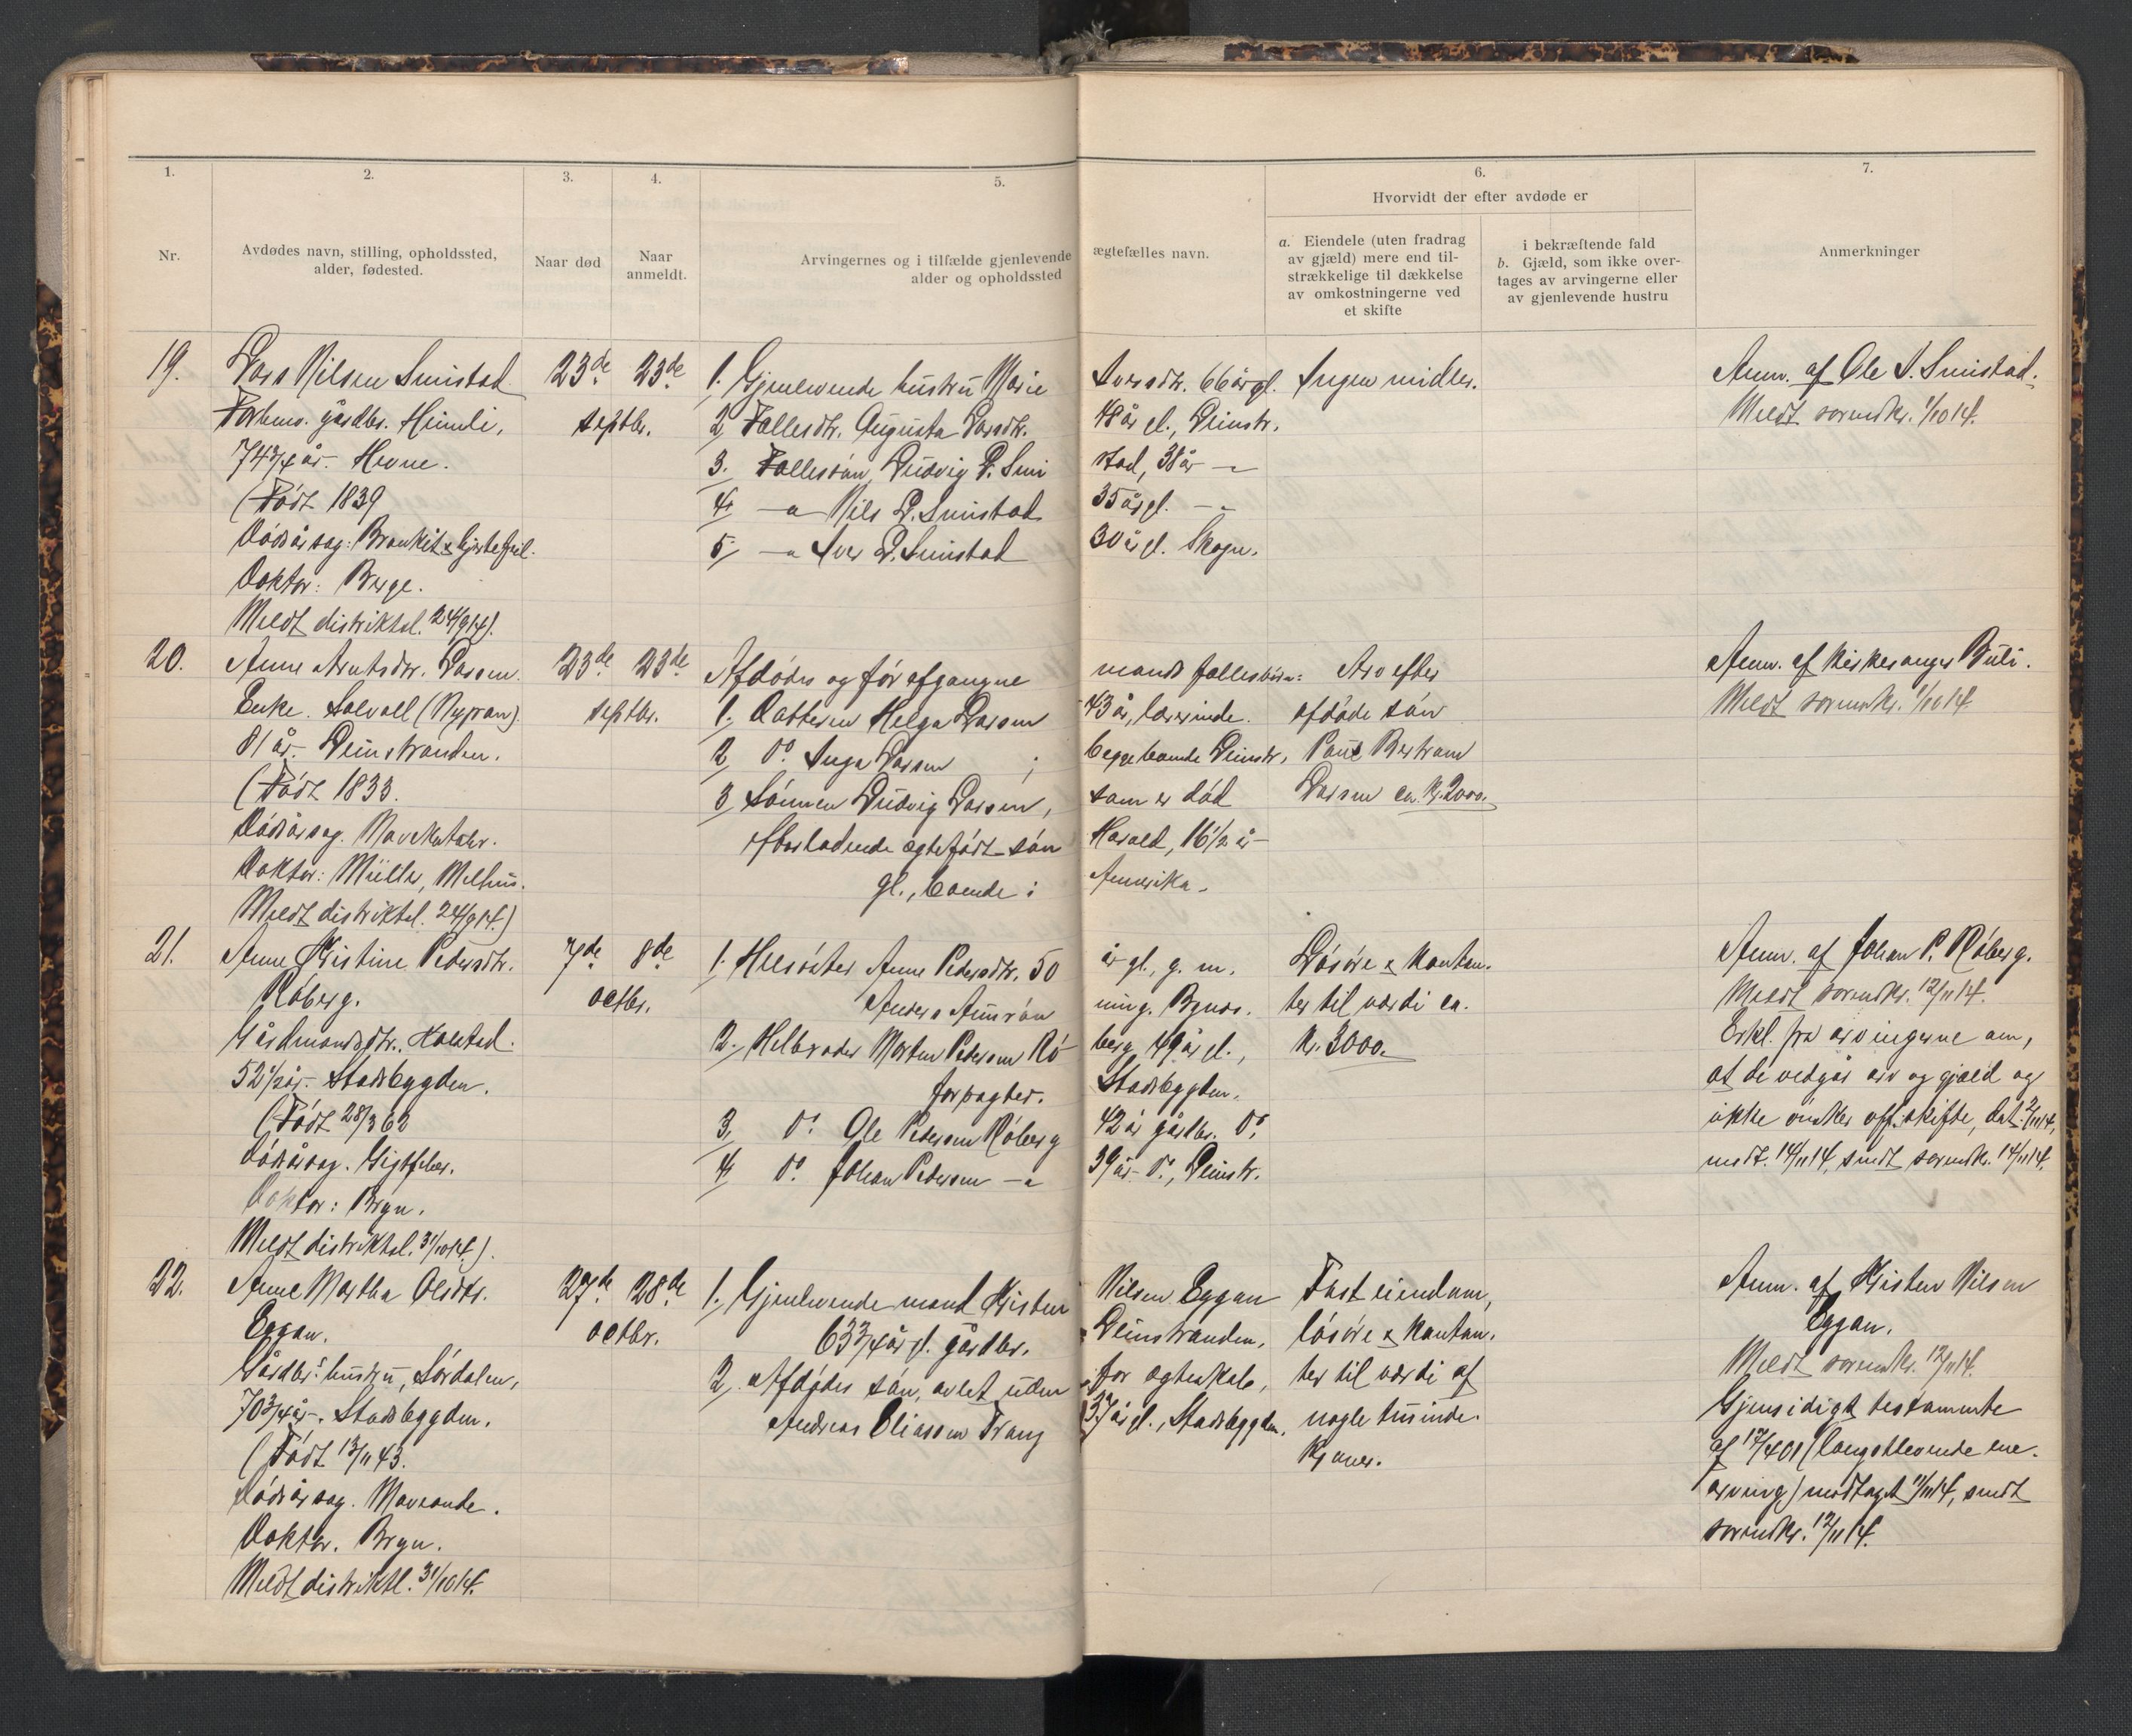 1.
2.
3.
4.
5.
6.
7.
Nr.
Avdødes navn, stilling, opholdssted,
alder, fødested.
Naar død
Naar
anmeldt.
Arvingernes og i tilfælde gjenlevende ægtefælles navn.
alder og opholdssted
Hvorvidt der efter avdøde er
a. Eiendele (uten fradrag
av gjæld) mere end til-
strækkelige til dækkelse
av omkostningerne ved
et skifte
i bekræftende fald
b. Gjæld, som ikke over-
tages av arvingerne eller
av gjenlevende hustru
Anmerkninger
19.
Lars Nilsen Smistad
Forhens. gårdbr. Heimli,
74 3/4 år. Hevne.
(Født 1839
Dødsårsag: Bronkit & hjertefeil.
Doktor: Berge.
Meldt distriktsl. 24/9 14).
23de 23de
septbr.
1. Gjenlevende hustru Marie Iversdtr. 66 år gl.
2, Fællesdtr. Augusta Larsdtr. 48 år gl., Leinstr.
3. Fællessøn Ludvig L. Smistad, 38 år —"—
4, —"— Nils L. Smistad 35 år gl. —"—
5, —"— Iver L. Smistad 30 år gl. Skogn.
Ingen midler.
Anm. af Ole I. Smistad.
Meldt sorenskr. 1/10 14.
20.
Anne Arntsdtr. Larsen
Enke. Solvoll (Nypan).
81 år. Leinstranden.
(Født 1833.
Dødsårsag. Mavekatarr.
Doktor: Müller, Melhus.
Meldt distriktsl. 24/9 14.)
23de 23de
septbr.
Afdødes og før afgangne mands fællesbørn:
1. Datteren Helga Larsen 43 år, lærerinde.
2, Do Inga Larsen ; begge boende Leinstr,
3, Sønnen Ludvig Larsen, som er død
efterladende ægtefødt søn Harald, 16 1/2 år
gl., boende i Amerika.
Arv efter
afdøde søn
Paul Bertram
Larsen ca. kr. 2000.
Anm. af kirkesanger Buli.
Meldt sorenskr. 1/10 14.
21.
Anne Kristine Pedersdtr.
Røberg.
Gårdmandsdtr. Halsted.
52 1/2 år. Stadsbygden.
(Født 28/3 62
Dødsårsag. Gigtfeber.
Doktor: Bryn.
Meldt distriktsl. 31/10 14.).
7de 8de
octbr.
1. Helsøster Anne Pedersdtr. 50 år gl., g. m.
Anders
2. Helbroder Morten Pedersen Røberg 49 år gl.,
forpagter. Stadsbygden.
3, Do. Ole Pedersen Røberg 42 år gårdbr. Do.
4, Do. Johan Pedersen —"— 39 år. Do., Leinstr.
Løsøre & kontan-
ter til værdi ca.
kr. 3000.
Anm. af Johan P. Røberg.
Meldt sorenskr. 12/11 14.
Erkl. fra arvingerne om,
at de vedgår arv og gjæld og
ikke ønsker off. skifte, dat. 2/11 14,
modt. 14/11 14, sendt sorenskr. 14/11 14.
22.
Anne Martha Olsdtr.
Eggan.
Gårdbr.s hustru, Sørdalen,
70 3/4 år. Stadsbygden.
(Født 13/11 43.
Dødsårsag. Mavsonde.
Doktor. Bryn.
Meldt distriktl. 31/10 14.
27de 28de
octbr.
1. Gjenlevende mand Kristen Nilsen Eggan
63 3/4 år gl. gårdbr. Leinstranden.
2, Afdødes søn, avlet uden for ægteskab,
Andreas Eliassen Trang 37 år gl., Stadsbygden.
Fast eiendom,
løsøre & kontan-
ter til værdi af
nogle tusinde
kroner.
Anm. af Kristen Nilsen
Eggan.
Meldt sorenskr. 12/11 14.
Gjensidigt testamente
af 17/4 01 (længstlevende ene-
arving) modtaget 11/11 14, sendt
sorenskr. 12/11 14.